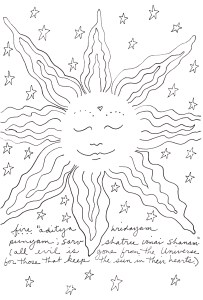 fire "aditya hridayam
punyam, sarv shatru vinai shanam"
(all evil is gone from the Universe
for those that keep the sun in their hearts)